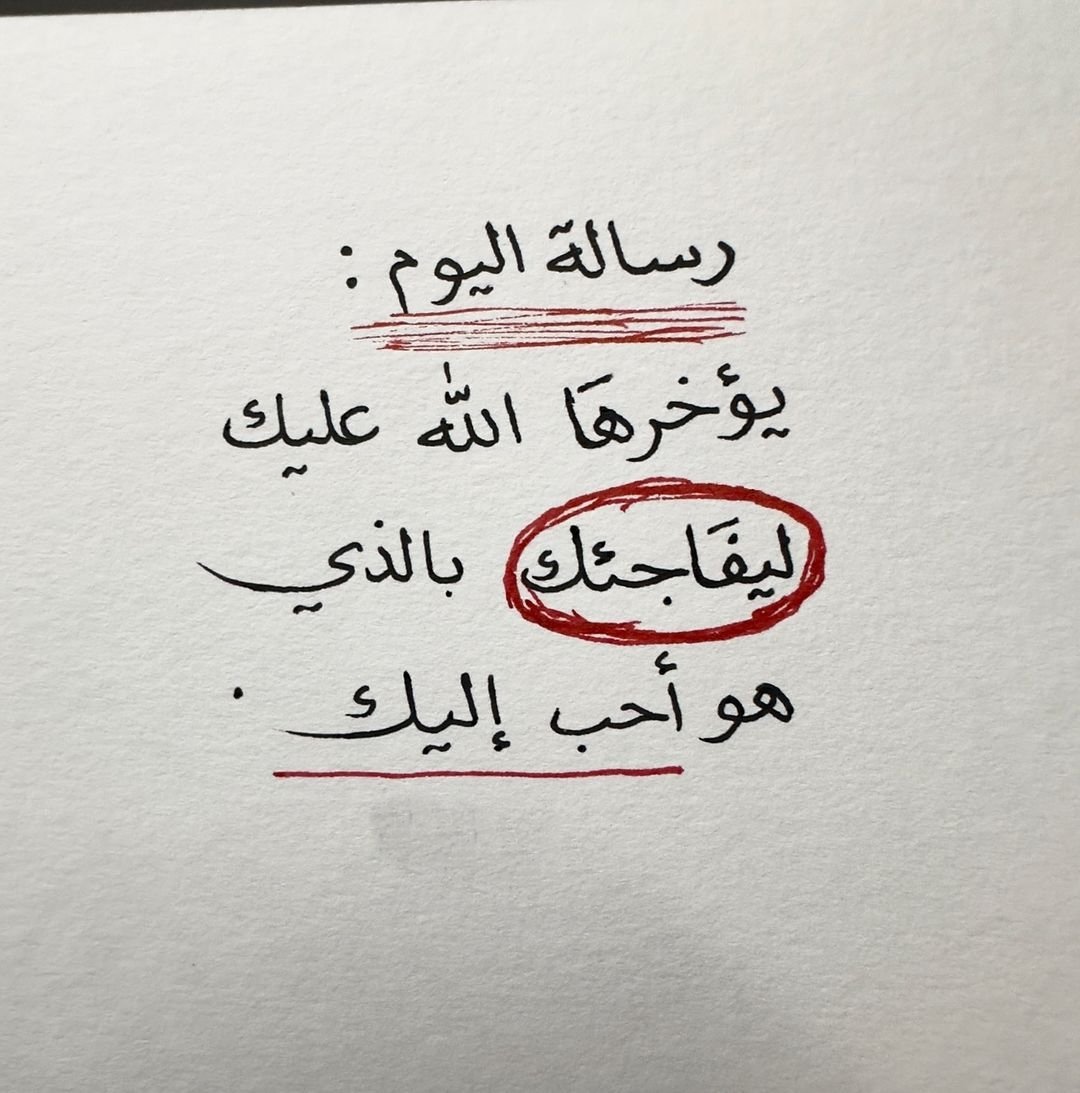 رسالة اليوم :
يؤخرهَا اللّٰه عليك
ليفَاجئك بالذي
هو أحب إليك .